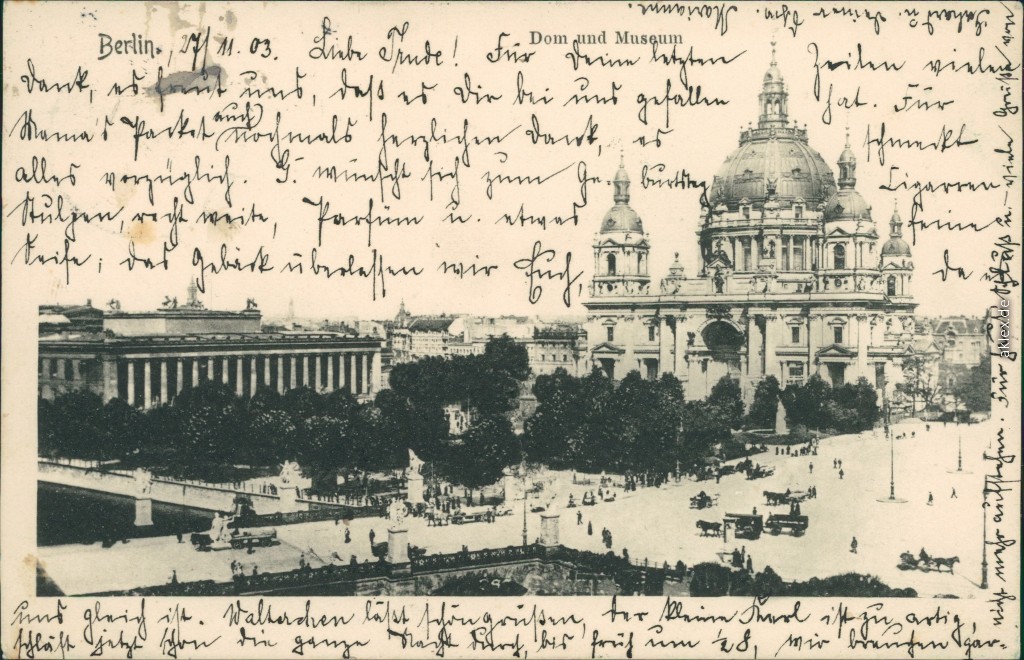 Berlin. 27/11.03. Liebe Trude! Für Deine letzten Zeilen vielen
Dom und Museum
Dank, es freut uns, daß es Dir bei uns gefallen hat. Für
Mama's Packet auch nochmals herzlichen Dank, es schmeckt
alles vorzüglich. G. wünscht sich zum Geburtstag Cigarren
Stulpen, recht weite, Parfüm u. etwas feine
Seife; das Gebäck überlassen wir Euch, da es
uns gleich ist. Waltachen läßt schön grüßen, der kleine Kerl ist zu artig,
schläft jetzt schon die ganze Nacht durch, bis früh um ½8, wir brauchen gar-
nicht mehr aufstehen. Für heute Schluß u. viele Grüße von
Gerhard u. Deiner Marianne.
akpool.de